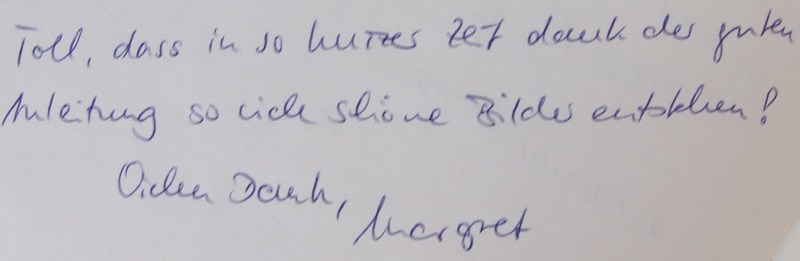 Toll, dass in so kurzer Zeit dank der guten
Anleitung so viele schöne Bilder entstehen!
Vielen Dank,
Margret